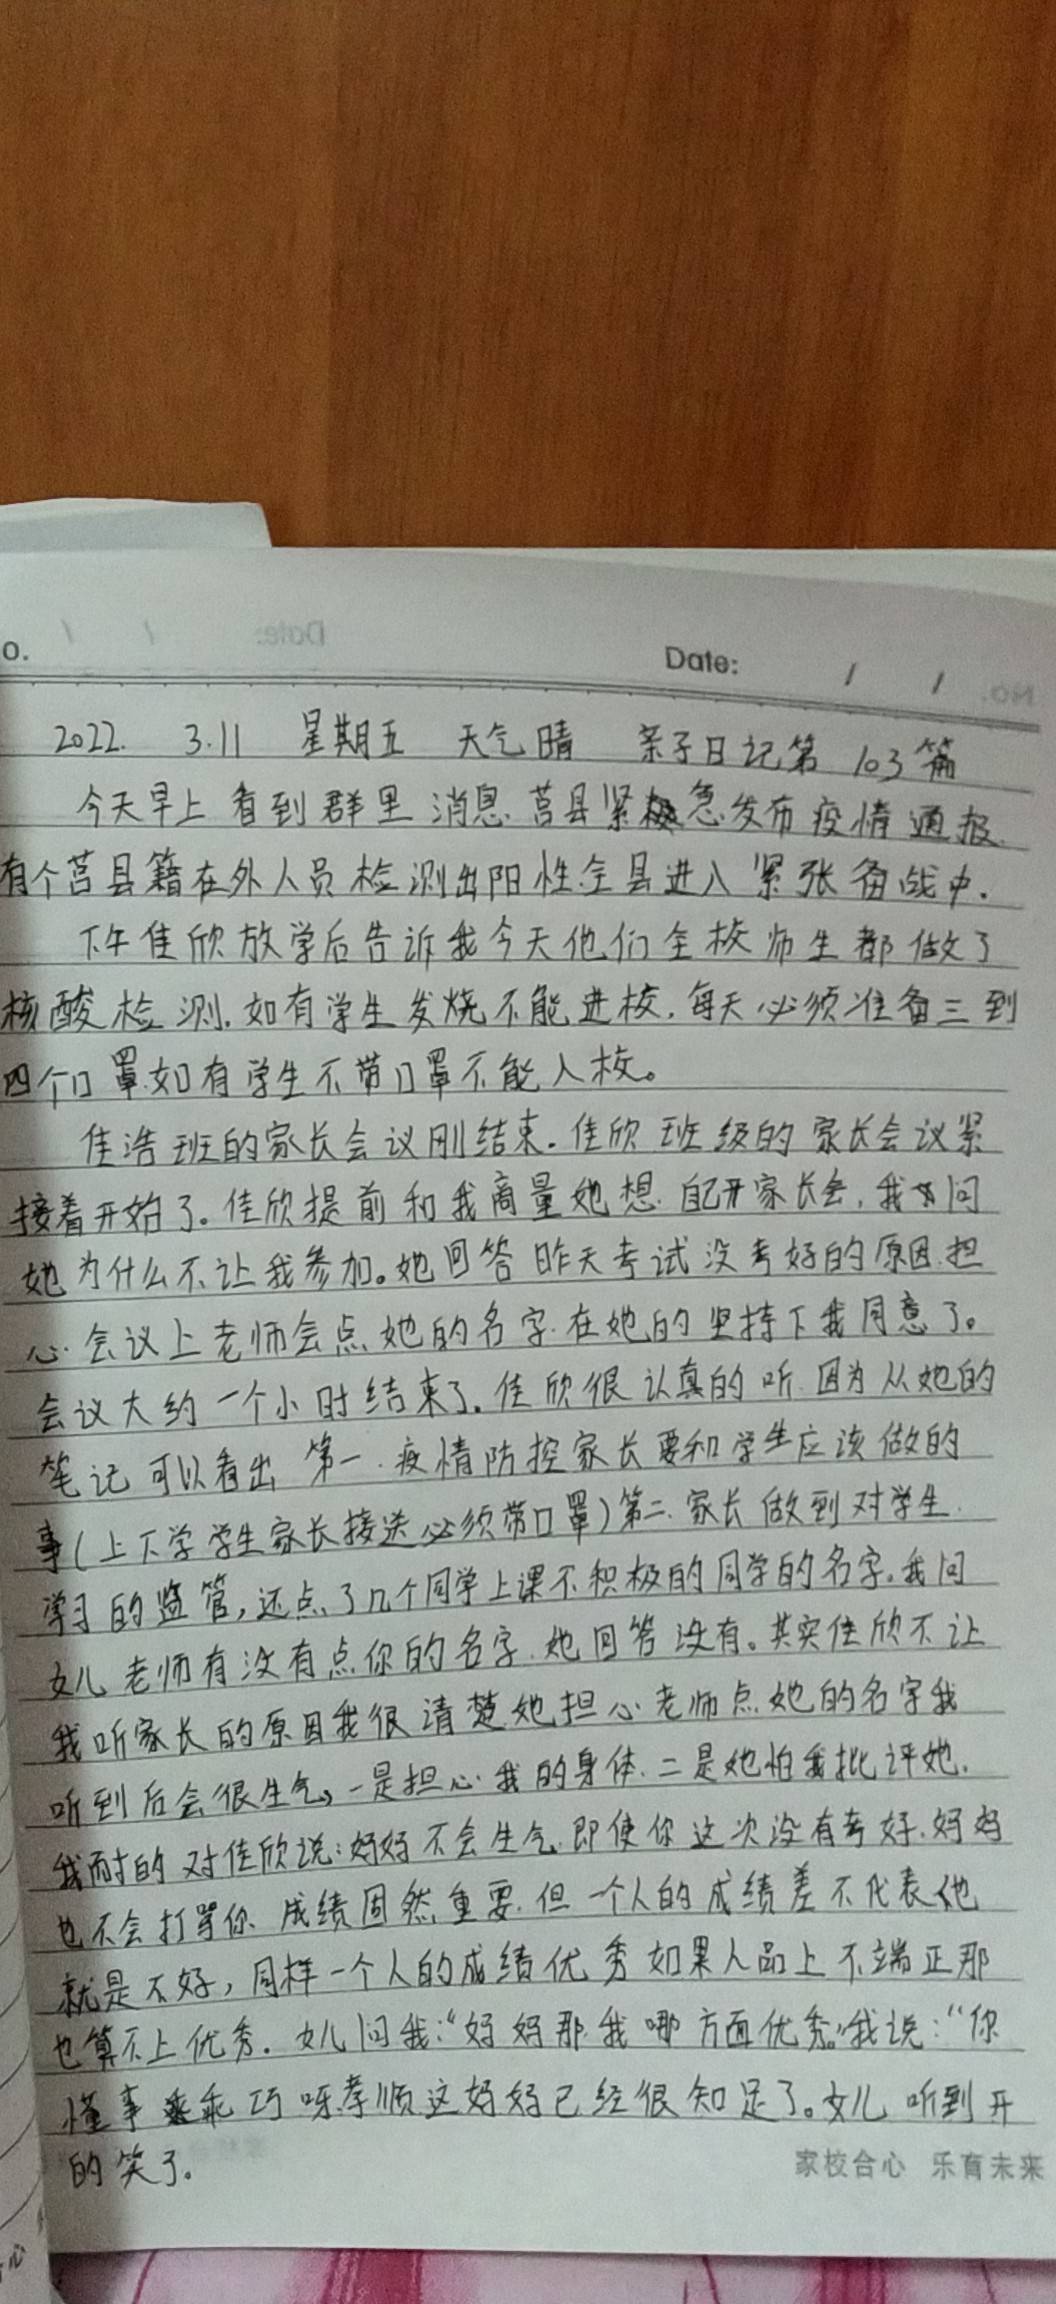 o.
Date:
2022. 3.11 星期五 天气晴 亲子日记第103篇
今天早上看到群里消息.莒县紧急发布疫情通报.
有个莒县籍在外人员检测出阳性.全县进入紧张备战中.
下午佳欣放学后告诉我今天他们全校师生都做了
核酸检测.如有学生发烧不能进校.每天必须准备三到
四个口罩.如有学生不带口罩不能入校。
佳浩班的家长会议刚结束.佳欣班级的家长会议紧
接着开始了。佳欣提前和我商量她想自己开家长会,我问
她为什么不让我参加。她回答昨天考试没考好的原因.担
心会议上老师会点她的名字.在她的坚持下我同意了。
会议大约一个小时结束了.佳欣很认真的听.因为从她的
笔记可以看出 第一.疫情防控家长要和学生应该做的
事(上下学学生家长接送必须带口罩)第二.家长做到对学生
学习的监管,还点了几个同学上课不积极的同学的名字.我问
女儿老师有没有点你的名字.她回答没有。其实佳欣不让
我听家长的原因我很清楚她担心老师点她的名字我
听到后会很生气,一是担心我的身体.二是她怕我批评她.
我耐的对佳欣说:妈妈不会生气.即使你这次没有考好.妈妈
也不会打骂你.成绩固然重要.但一个人的成绩差不代表他
就是不好,同样一个人的成绩优秀如果人品上不端正那
也算不上优秀.女儿问我:“妈妈那我哪方面优秀”.我说:“你
懂事乖巧呀.孝顺这妈妈已经很知足了。女儿听到开
的笑了.
家校合心 乐育未来